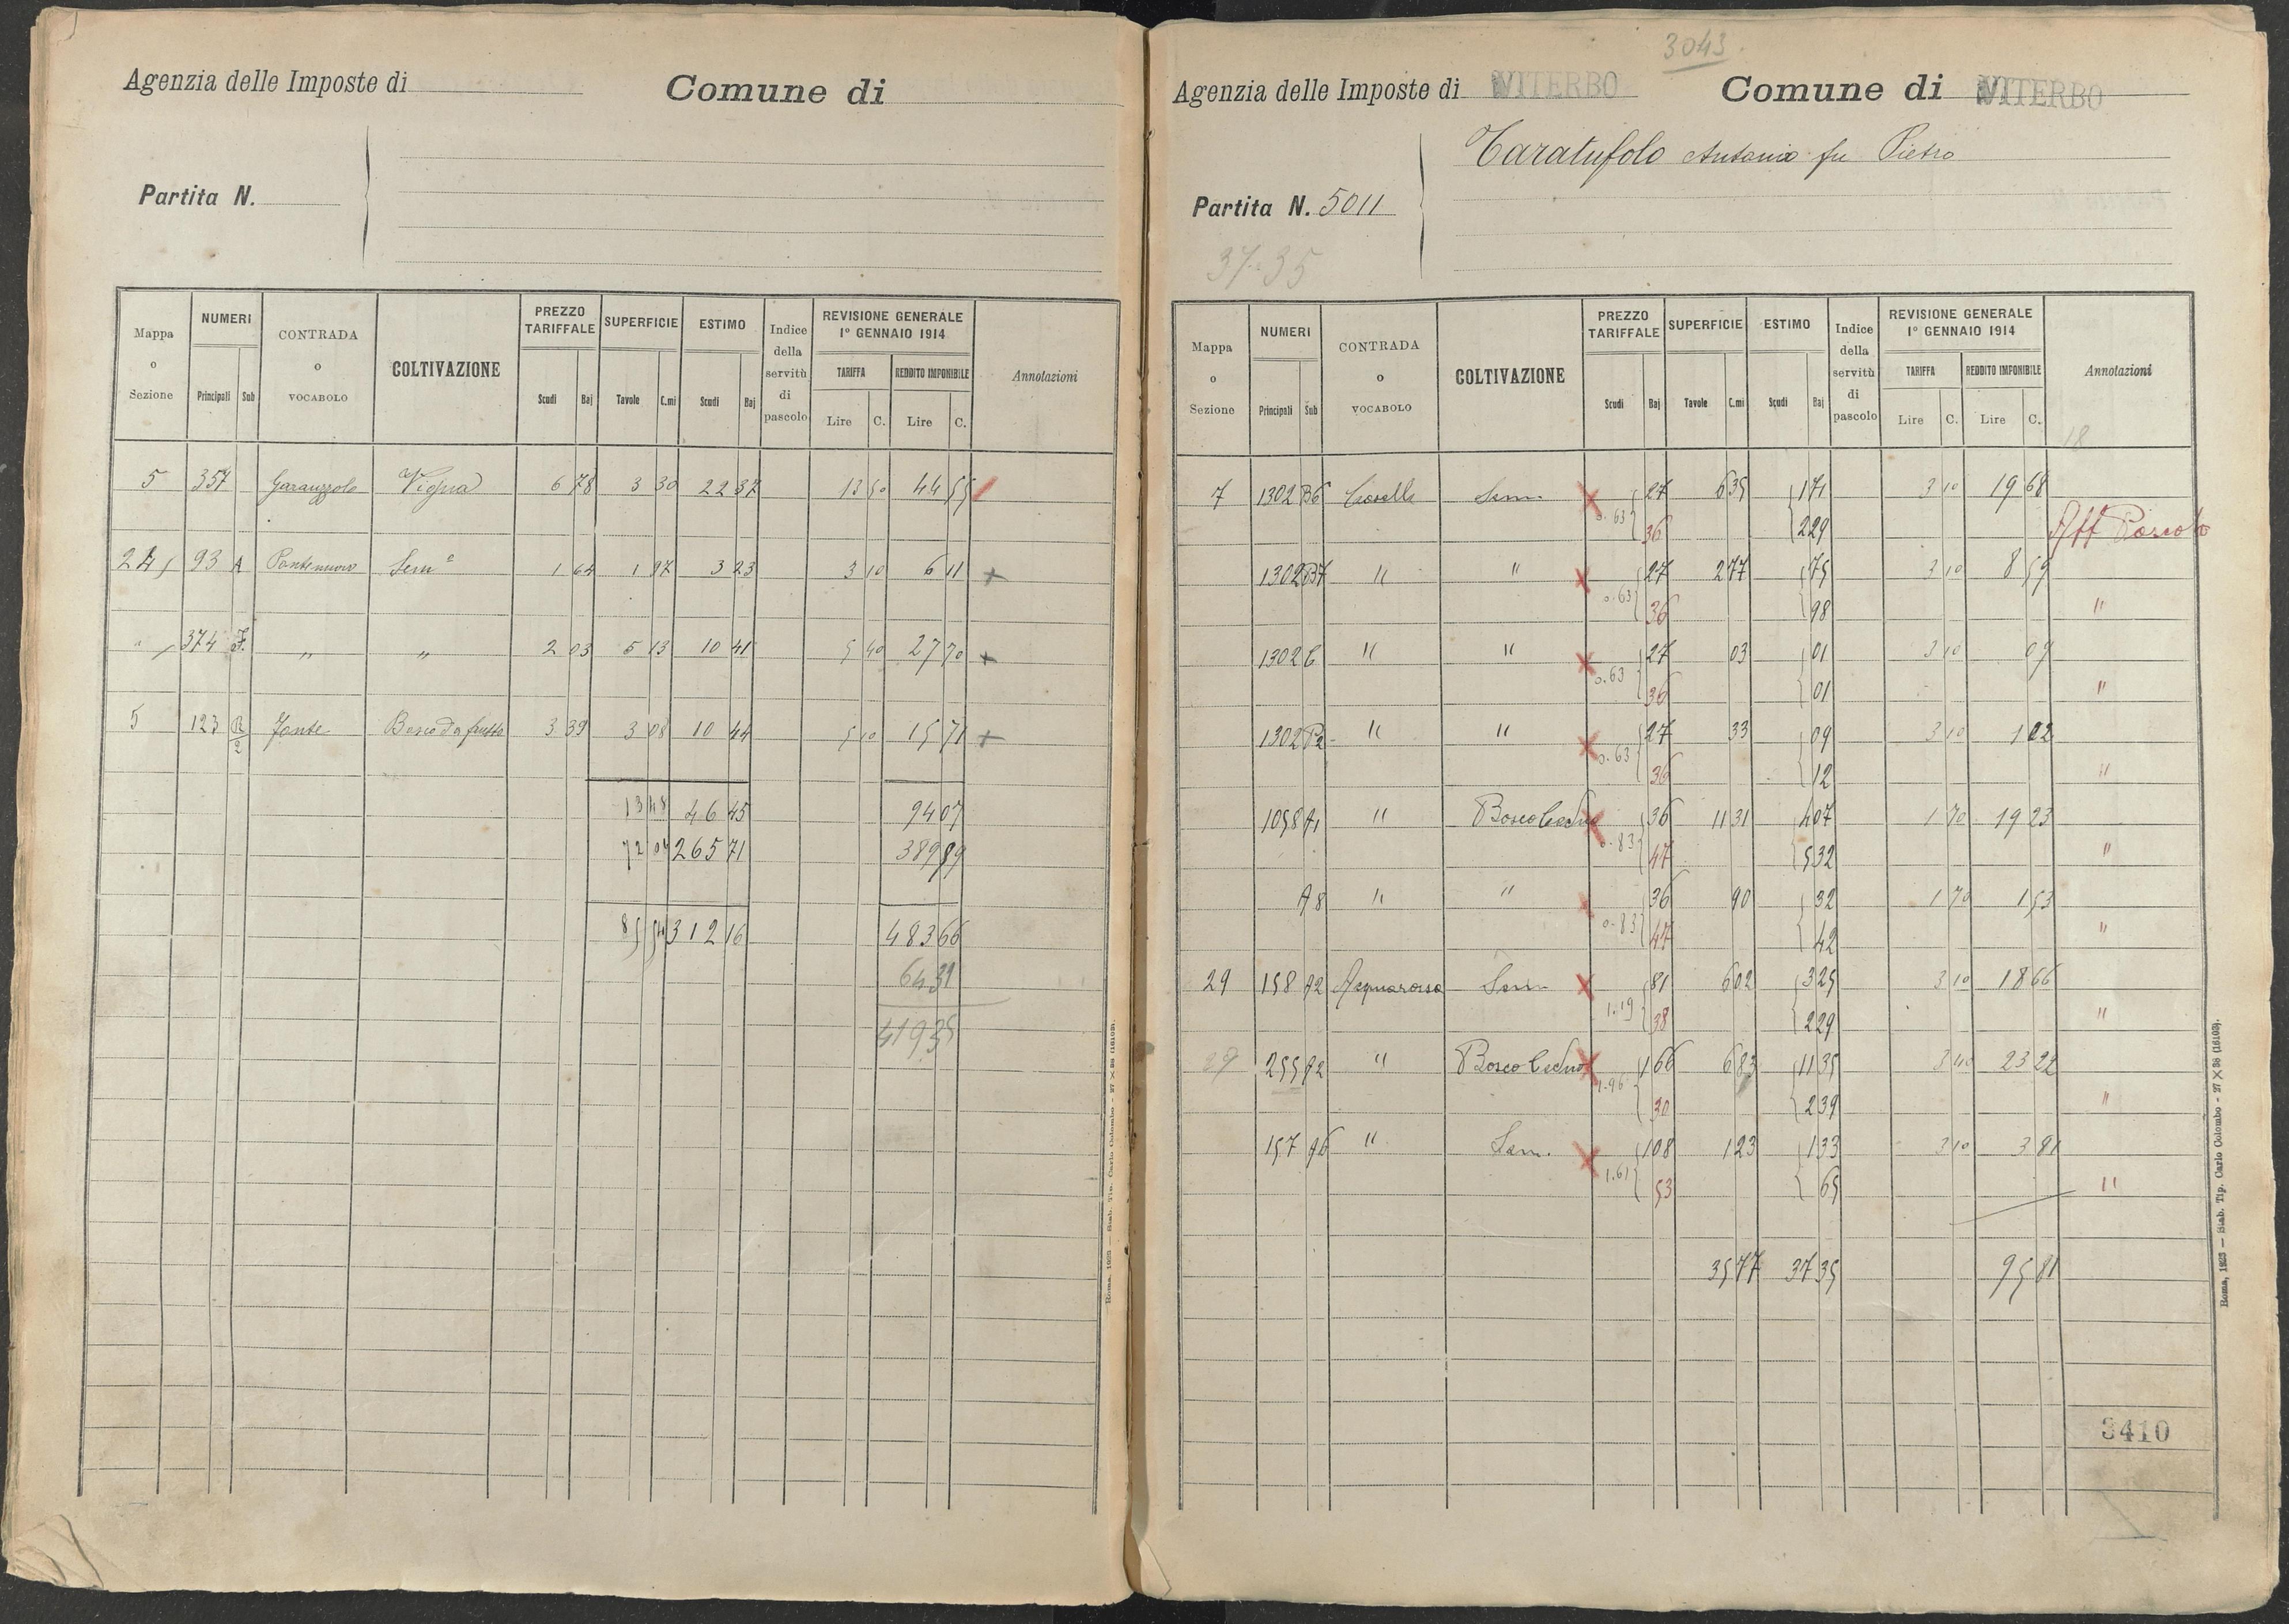 Agenzia delle Imposte di
Comune di
Partita N.
Mappa o Sezione
NUMERI
Principali
Sub
CONTRADA o VOCABOLO
COLTIVAZIONE
PREZZO TARIFFALE
Scudi
Baj
SUPERFICIE
Tavole
C.mi
ESTIMO
Scudi
Baj
Indice della servitù di pascolo
REVISIONE GENERALE
1° GENNAIO 1914
TARIFFA
REDDITO IMPONIBILE
Lire
C.
Lire
C.
Annotazioni
5 357 Vigna 6 78 3 30 22 37 13 50 44 55
24 93 A Pontenuovo Sem.e 1 64 1 97 3 23 3 10 6 11 +
" 374 F. " " 2 03 5 13 10 41 5 40 27 70 +
5 123 R/2 Fonte Bosco da frutto 3 39 3 08 10 44 5 10 15 71 +
13 48 46 45 94 07
72 04 265 71 389 89
85 54 312 16 483 66
64 31
419 35
Roma, 1923 — Stab. Tip. Carlo Colombo - 27 X 38 (16103).
3043.
Agenzia delle Imposte di VITERBO
Comune di VITERBO
Taratufolo Antonio fu Pietro
Partita N. 5011
37-35
Mappa o Sezione
NUMERI
Principali
Sub
CONTRADA o VOCABOLO
COLTIVAZIONE
PREZZO TARIFFALE
Scudi
Baj
SUPERFICIE
Tavole
C.mi
ESTIMO
Scudi
Baj
Indice della servitù di pascolo
REVISIONE GENERALE
1° GENNAIO 1914
TARIFFA
REDDITO IMPONIBILE
Lire
C.
Lire
C.
Annotazioni
18
7 1302 B6 Sem. 27 6 35 1 71 3 10 19 68
0.63 36 2 29 Aff Pascolo
1302 B7 " " 27 2 77 75 3 10 8 59
0.63 36 98 "
1302 C " " 27 03 01 3 10 09
0.63 36 01 "
1302 P2 " " 27 33 09 3 10 1 02
0.63 36 12 "
1058 A1 " Bosco Ceduo 36 11 31 4 07 1 70 19 23
0.83 47 5 32 "
A8 " " 36 90 32 1 70 1 53
0.83 47 42 "
29 158 A2 Acquarossa Sem. 81 6 02 3 25 3 10 18 66
1.19 38 2 29 "
29 255 A2 " Bosco Ceduo 1 66 6 83 11 35 3 40 23 22
1.96 30 2 39 "
157 A6 " Sem. 1 08 1 23 1 33 3 10 3 81
1.61 53 65 "
35 77 37 35 95 81
3410
Roma, 1923 — Stab. Tip. Carlo Colombo - 27 X 38 (16103).